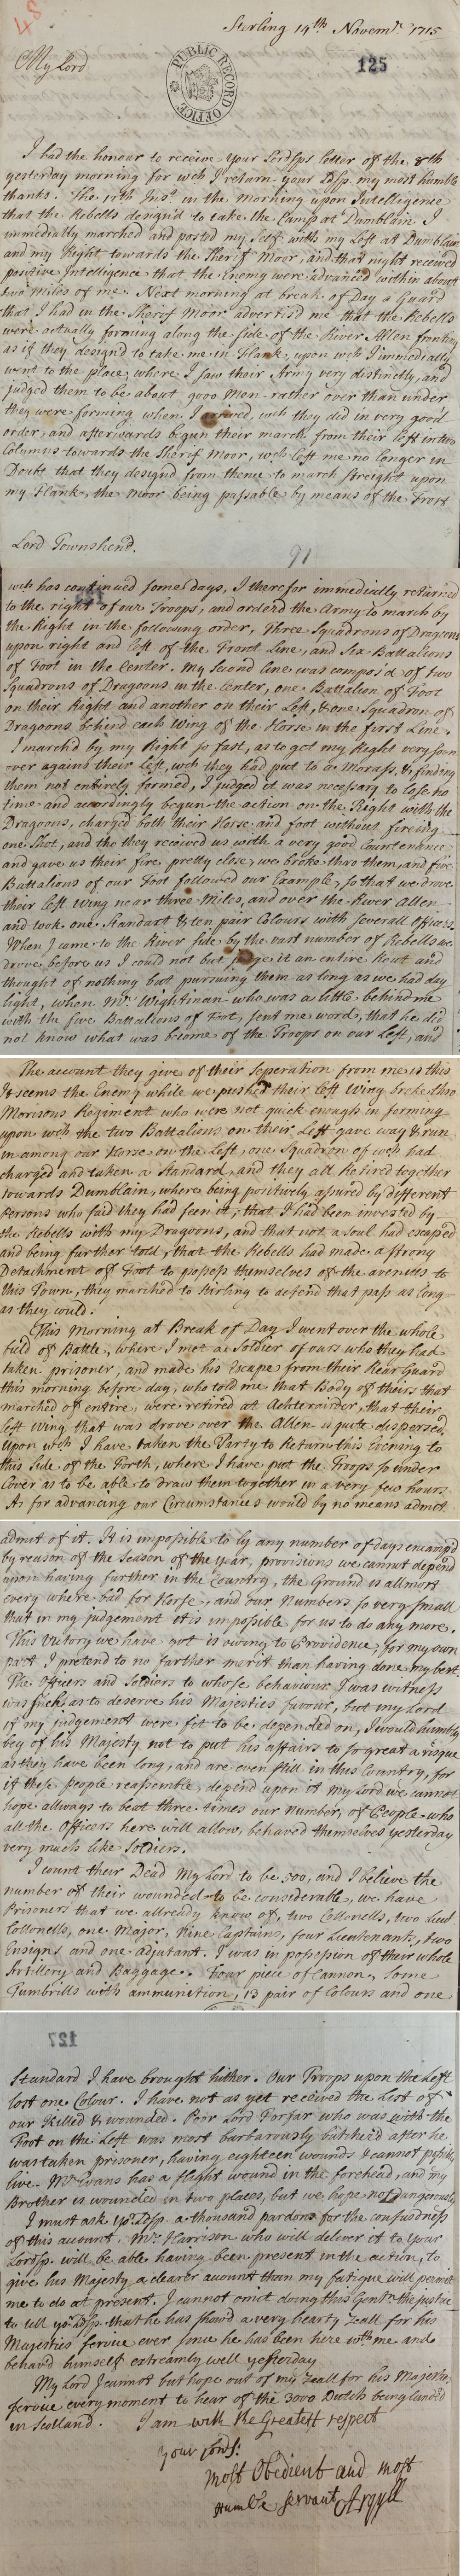 48
Sterling 14th Novemr 1715
My Lord
PUBLIC RECORD OFFICE
125
I had the honour to receive your Lordsps letter of the 8th
yesterday morning for wch I return your Ldsp. my most humble
thanks. The 12th Inst in the morning upon Intelligence
that the Rebells design'd to take the Camp at Dumblain I
immedially marched and posted my self with my Left at Dumblain
and my Right towards the Sherif Moor, and that night received
positive Intelligence that the Enemy were advanced within about
two miles of me. Next morning at break of Day a Guard
that I had in the Sherif Moor advertis'd me that the Rebells
were actually forming along the side of the River Allen fronting
as if they design'd to take me in Flank, upon wch I immedially
went to the place, where I saw their Army very distinctly, and
judged them to be about 9000 Men rather over than under
they were forming when I arrived, wch they did in very good
order, and afterwards begun their march from their left in two
Columns towards the Sherif Moor, wch left me no longer in
Doubt that they design'd from thence to march streight upon
my Flank, the Moor being passable by means of the Frost
Lord Townshend.
91
wch has continued some days, I therefor immedially returned
to the right of our Troops, and order'd the Army to march by
the Right in the following order, Three Squadrons of Dragoons
upon right and left of the Front Line, and Six Battalions
of Foot in the Center. My second Line was compos'd of two
Squadrons of Dragoons in the Center, one Battalion of Foot
on their Right and another on their Left, & one Squadron of
Dragoons behind each Wing of the Horse in the first Line.
I march'd by my Right so fast, as to get my Right very soon
over against their Left, wch they had put to a Morass, & finding
them not entirely formed, I judged it was necessary to lose no
time and accordingly begun the action on the Right with the
Dragoons, charged both their Horse and foot without fireing
one Shot, and tho they received us with a very good Countenance
and gave us their fire pretty close, we broke thro them, and five
Battalions of our Foot followed our Example, so that we drove
their left Wing near three Miles, and over the River Allen
and took one Standart & ten pair Colours with severall Officers.
When I came to the River side by the vast number of Rebells we
drove before us I could not but judge it an entire Rout and
thought of nothing but pursuing them as long as we had day
light, when Mr Wightman who was a little behind me
with the five Battalions of Foot, sent me word, that he did
not know what was become of the Troops on our Left, and
The account they give of their seperation from me is this
It seems the Enemy while we pushed their left Wing broke thro
Morisons Regiment who were not quick enough in forming
upon wch the two Battalions on their Left gave way & run
in among our Horse on the Left, one Squadron of wch had
charged and taken a Standard, and they all Retired together
towards Dumblain, where being positively assured by different
persons who said they had seen it, that I had been invested by
the Rebells with my Dragoons, and that not a soul had escaped
and being further told, that the Rebells had made a strong
Detachment of Foot to possess themselves of the avenues to
this Town, they marched to Stirling to defend that pass as long
as they could.
This Morning at Break of Day I went over the whole
field of Battle, where I met a Soldier of ours who they had
taken prisoner, and made his Escape from their Rear Guard
this morning before day, who told me that Body of theirs that
marched of entire, were retired at Achterairder, that their
left Wing that was drove over the Allen is quite dispersed,
Upon wch I have taken the Party to Return this Evening to
this Side of the Forth, where I have put the Troops so under
Cover as to be able to draw them together in a very few hours.
As for advancing our Circumstances would by no means admit
admit of it. It is impossible to ly any number of days encamp'd
by reason of the Season of the year, provisions we cannot depend
upon having further in the Country, the Ground is allmost
every where bad for Horse, and our Numbers so very small
that in my judgement it is impossible for us to do any more.
This Victory we have got is owing to Providence, for my own
part I pretend to no farther merit than having done my best
The Officers and Soldiers to whose behaviour I was witness
was such as to deserve his Majesties favour, but my Lord
if my judgement were fit to be depended on, I would humbly
beg of his Majesty not to put his affairs to so great a risque
as they have been long, and are even still in this Country, for
if these people reassemble, depend upon it my Lord we cannot
hope allways to beat three times our Number, of People who
all the Officers here will allow, behaved themselves yesterday
very much like Soldiers.
I count their Dead My Lord to be 500, and I believe the
number of their wounded to be considerable, we have
Prisoners that we allready know of, two Collonells, two Lieut
Collonells, one Major, Nine Captains, four Lieutenants, two
Ensigns and one adjutant. I was in possession of their whole
Artillery and Baggage. Four piece of Cannon, some
Tumbrills with ammunition, 13 pair of Colours and one
127
Standard I have brought hither. Our Troops upon the Left
lost one Colour. I have not as yet received the List of
our Killed & wounded. Poor Lord Forfar who was with the
Foot on the Left was most barbarously butcher'd after he
was taken prisoner, having eighteen wounds & cannot possibly
live. Mr Evans has a slight wound in the forehead, and my
Brother is wounded in two places, but we hope not Dangerously
I must ask yor Ldsp. a thousand pardons for the confusedness
of this account. Mr Harrison who will deliver it to your
Lordsp. will be able having been present in the action, to
give his Majesty a clearer account than my fatigue will permit
me to do at present. I cannot omit doing this Gentn the justice
to tell yor Ldsp. that he has show'd a very hearty Zeall for his
Majesties Service ever since he has been here with me and
behav'd himself extreamly well yesterday
My Lord I cannot but hope out of my Zeall for his Majesties
service, every moment to hear of the 3000 Dutch being landed
in Scotland. I am with the Greatest respect
Your Lords:
most Obedient and most
Humble servant Argyll